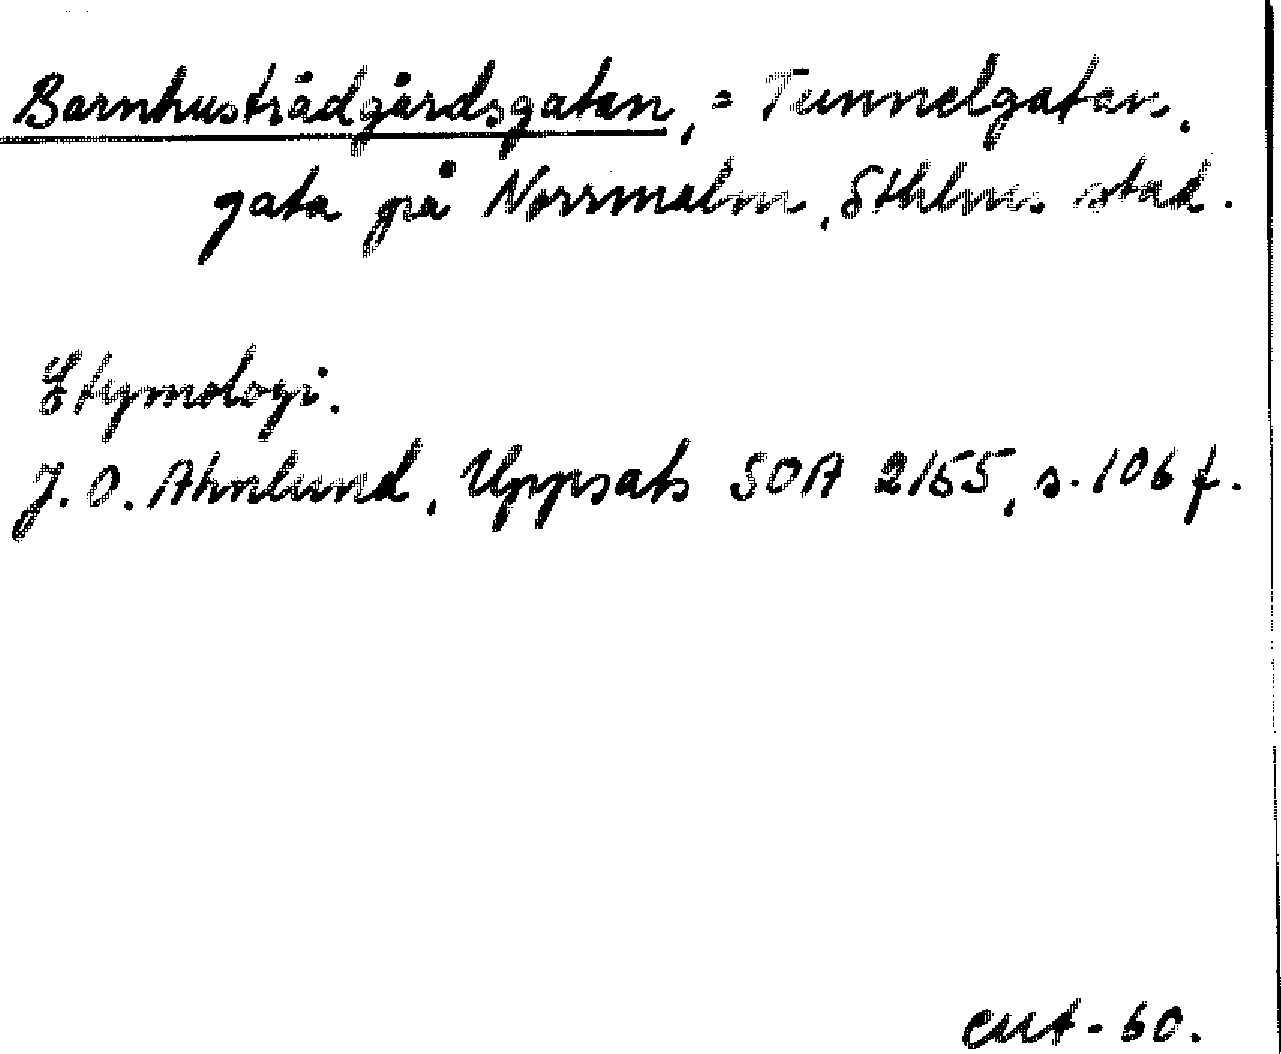 Barnhusträdgårdsgatan, = Tunnelgatan,
gata på Norrmalm, Sthlms stad.
Etymologi.
J. O. Ahnlund, Uppsats SOA 2155, s. 106 f.
CMT - 60.